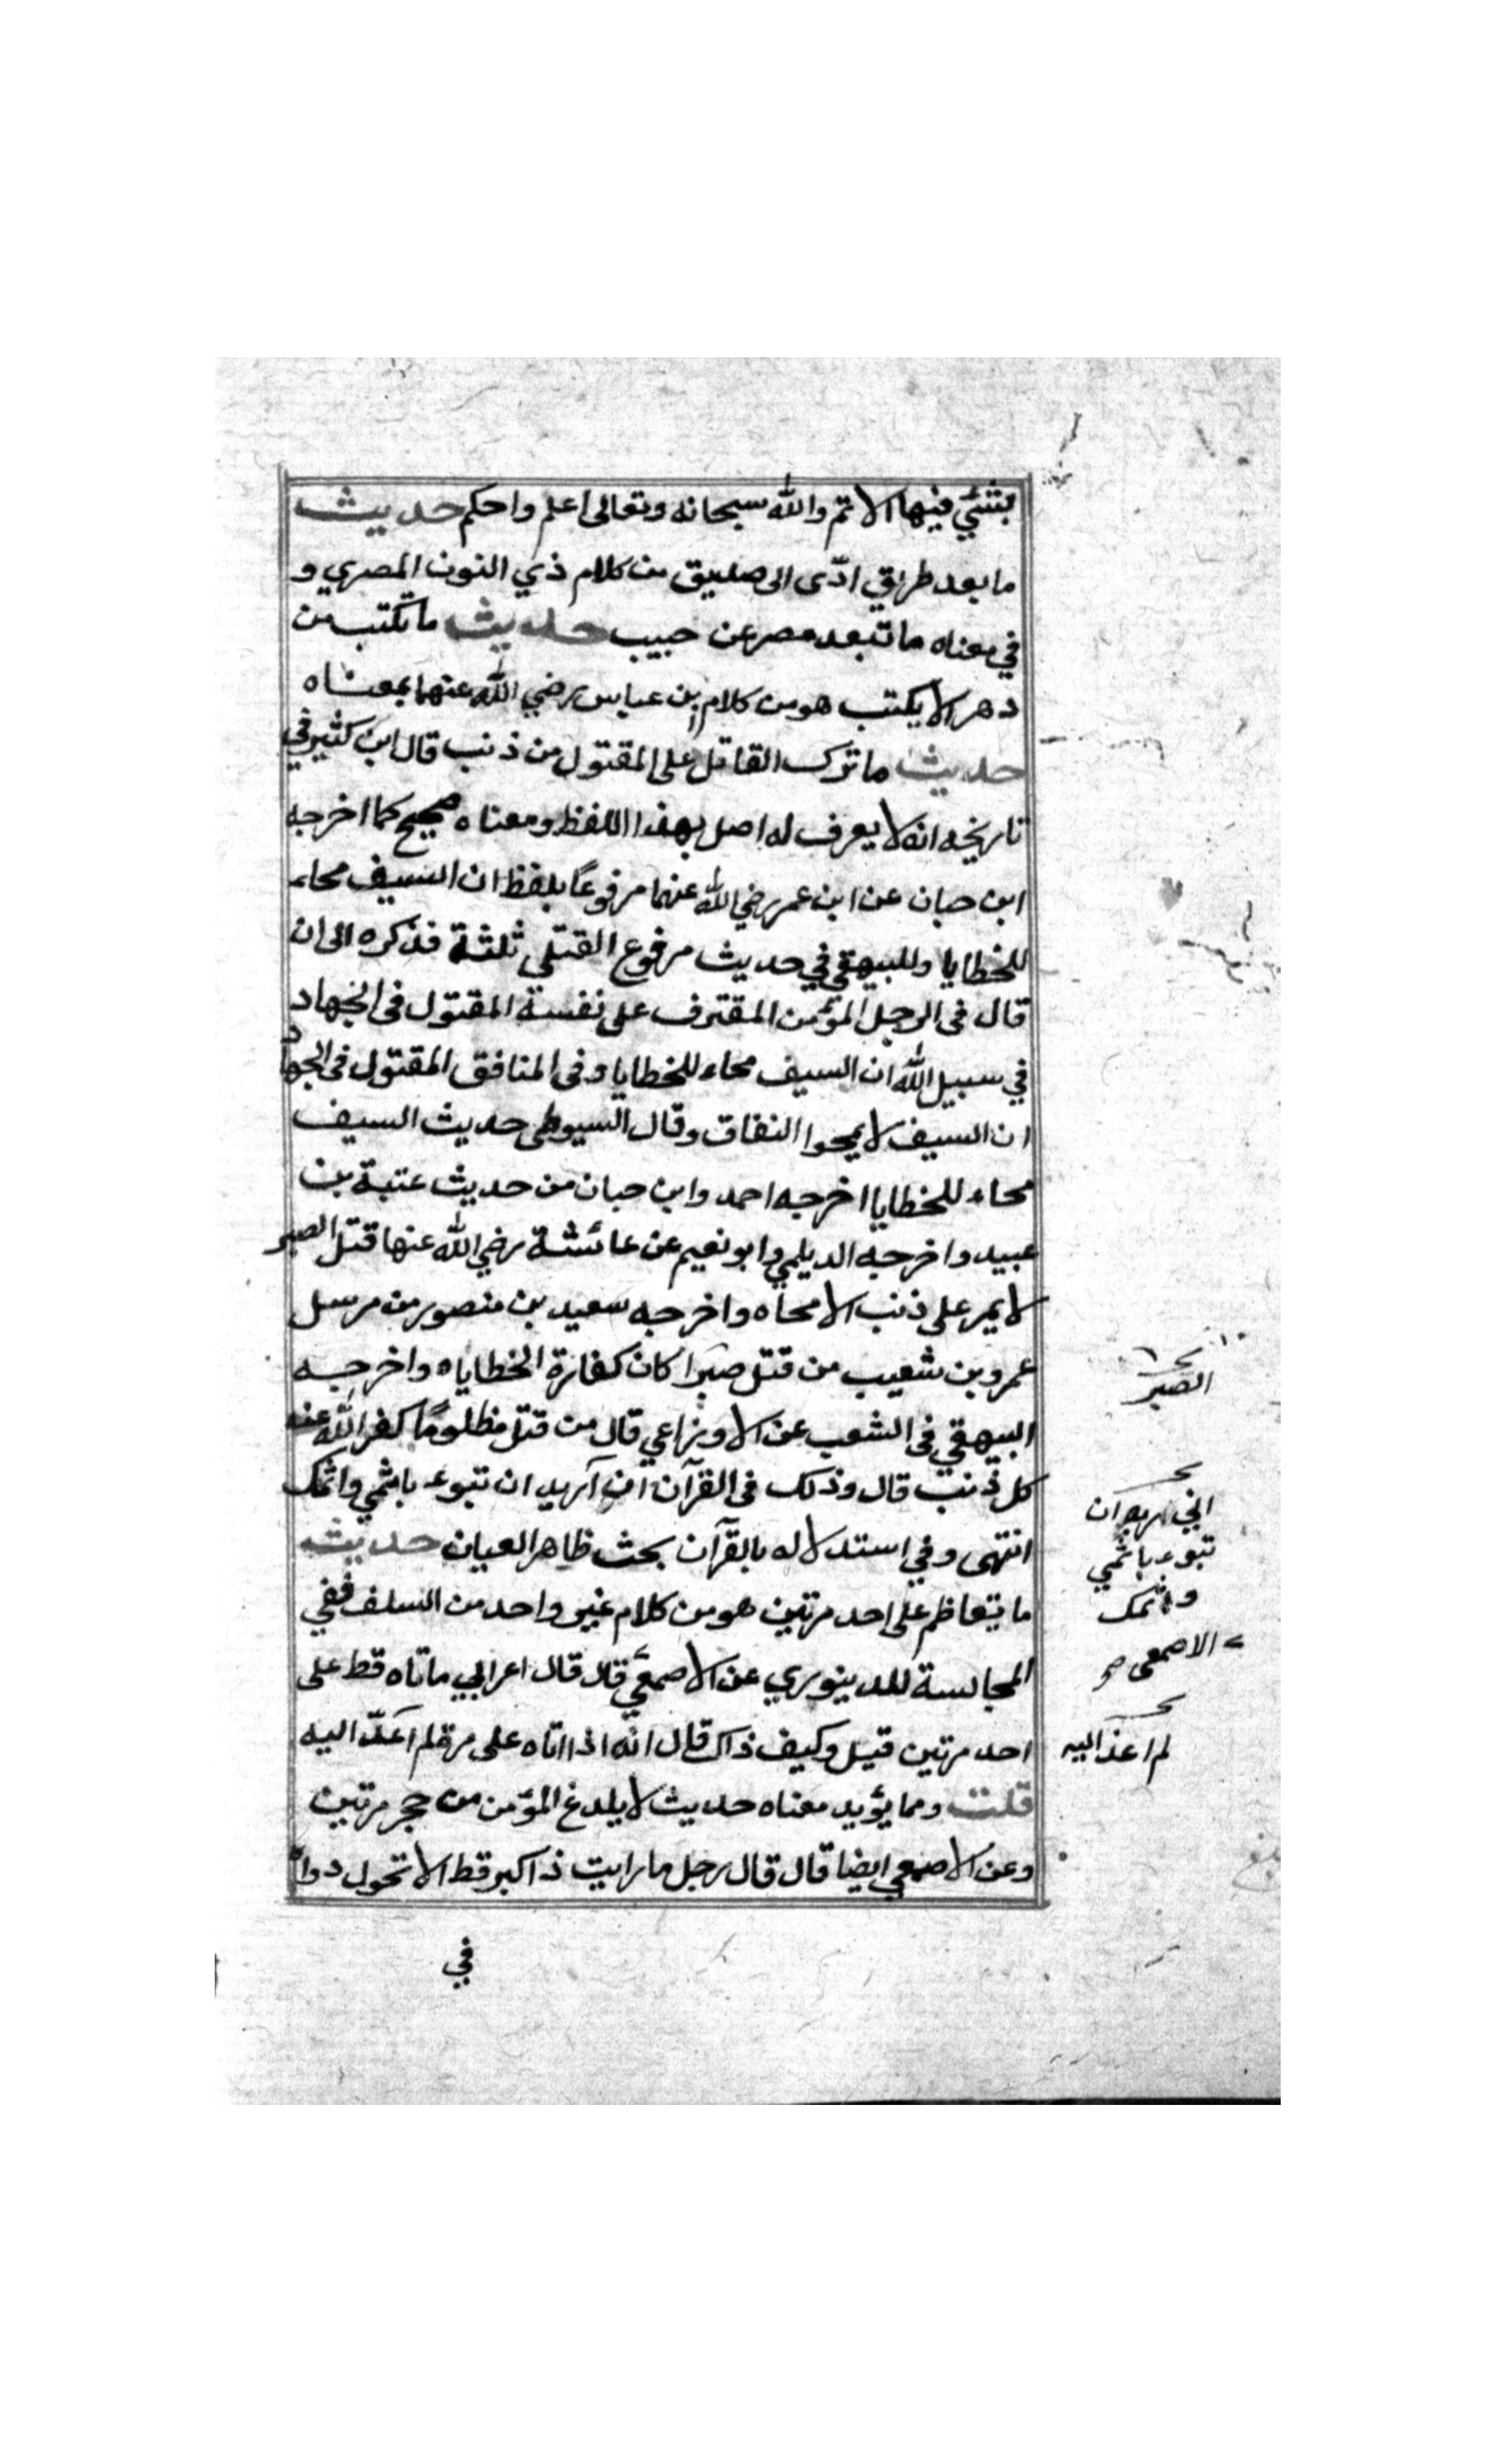 بشئ فيها الا تم والله سبحانه وتعالى اعلم واحكم حديث
ما بعد طريق ادّى الى صديق من كلام ذي النون المصري و
في معناه ما تبعد مصر عن حبيب حديث ما تكتب من
دهر لا يكتب هو من كلام ابن عباس رضي الله عنهما بمعناه
حديث ما ترك القاتل على المقتول من ذنب قال ابن كثير في
تاريخه انه لا يعرف له اصل بهذا اللفظ ومعناه صحيح كما اخرجه
ابن حبان عن ابن عمر رضي الله عنهما مرفوعًا بلفظ ان السيف محاء
للخطايا وللبيهقي في حديث مرفوع القتلى ثلثة فذكره الى ان
قال فى الرجل المؤمن المقترف على نفسه المقتول فى الجهاد
في سبيل الله ان السيف محاء للخطايا وفى المنافق المقتول فى الجهاد
ان السيف لا يمحوا النفاق وقال السيوطى حديث السيف
محاء للخطايا اخرجه احمد وابن حبان من حديث عتبة بن
عبيد واخرجه الديلمي وابو نعيم عن عائشة رضي الله عنها قتل الصبر
لا يمر على ذنب الا محاه واخرجه سعيد بن منصور من مرسل
عمرو بن شعيب من قتل صبرا كان كفارة الخطاياه واخرجه
البيهقي فى الشعب عن الاوزاعي قال من قتل مظلومًا كفر الله عنه
كل ذنب قال وذلك فى القرآن اني اريد ان تبوء باثمي واثمك
انتهى وفي استدلاله بالقرآن بحث ظاهر العيان حديث
ما يتعاظم على احد مرتين هو من كلام غير واحد من السلف ففي
المجالسة للدينوري عن الاصمعي قال قال اعرابي ماتاه قط على
احد مرتين قيل وكيف ذاك قال انه اذا اتاه على مرة لم اعد اليه
قلت ومما يؤيد معناه حديث لا يلدغ المؤمن من جحر مرتين
وعن الاصمعي ايضا قال قال رجل ما رايت ذا كبر قط الا تحول دواه
في
الصبر
اني اريد ان
تبوء باثمي
واثمك
الاصمعى صح
لم اعد اليه